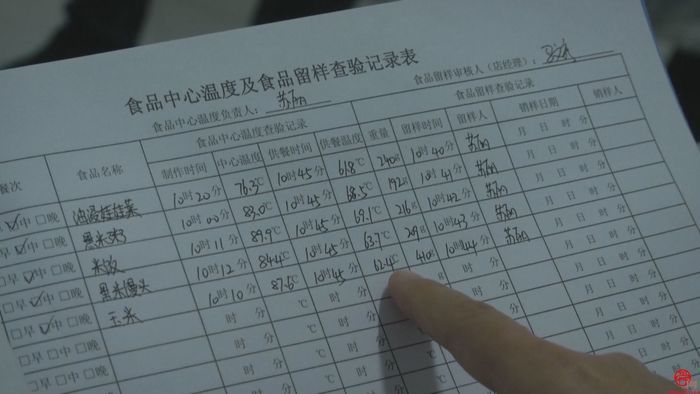 食品中心温度及食品留样查验记录表
食品中心温度负责人： 食品留样审核人（店经理）：
食品中心温度查验记录 食品留样查验记录
餐次 食品名称 制作时间 中心温度 供餐时间 供餐温度 重量 留样时间 留样人 销样日期 销样人
早☑中□晚 油浸娃娃菜 10时20分 76.3℃ 10时45分 61.8℃ 240g 10时40分 月 日 时 分
□早☑中□晚 黑米粥 10时00分 83.0℃ 10时45分 68.5℃ 192g 10时41分 月 日 时 分
□早☑中□晚 米饭 10时11分 89.9℃ 10时45分 69.1℃ 216g 10时42分 月 日 时 分
□早☑中□晚 黑米馒头 10时12分 84.4℃ 10时45分 63.7℃ 10时43分 月 日 时 分
□早☑中□晚 玉米 10时10分 87.6℃ 10时45分 62.4℃ 410g 10时44分 月 日 时 分
□早□中□晚 时 分 ℃ 时 分 g 月 日 时 分
□早□中□晚 时 分 ℃ 时 分 ℃ 月 日 时 分